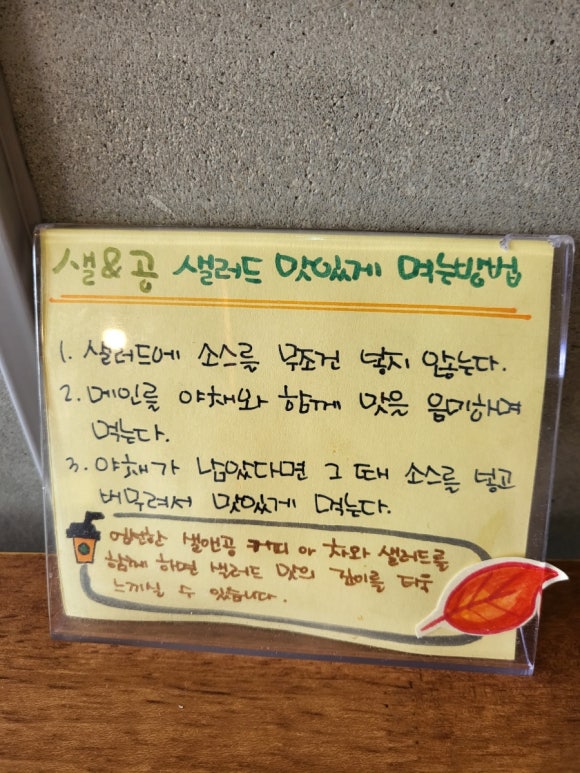 샐&공 샐러드 맛있게 먹는방법
1. 샐러드에 소스를 무조건 넣지 않는다.
2. 메인를 야채와 함께 맛을 음미하며
먹는다.
3. 야채가 남았다면 그 때 소스를 넣고
버무려서 맛있게 먹는다.
엄선한 샐앤공 커피 아 차와 샐러드를
함께 하면 샐러드 맛의 깊이를 더욱
느끼실 수 있습니다.